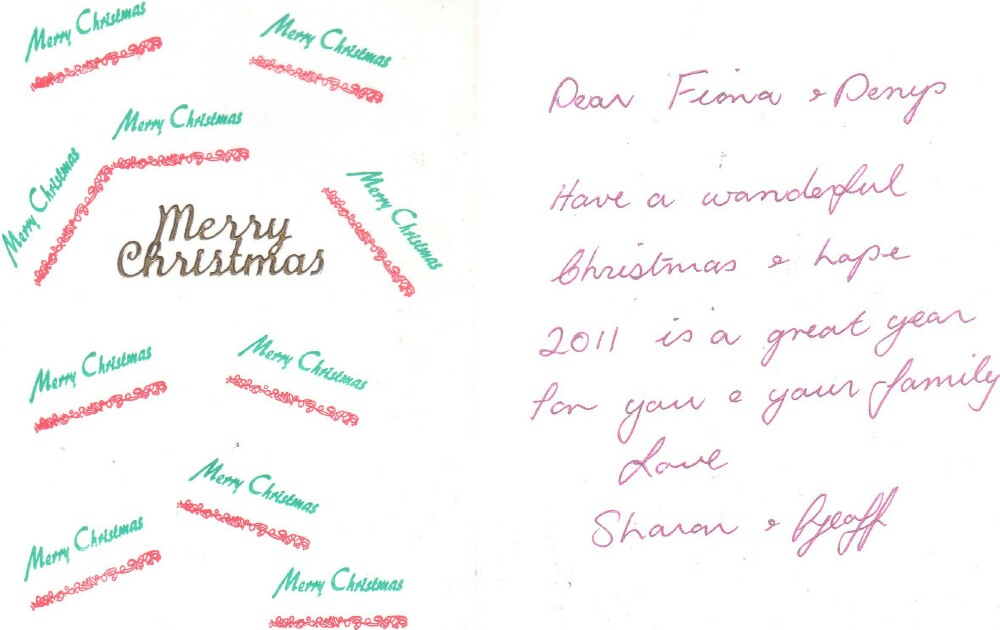 Merry Christmas
Merry Christmas
Merry Christmas
Merry Christmas
Merry Christmas
Merry
Christmas
Merry Christmas
Merry Christmas
Merry Christmas
Merry Christmas
Merry Christmas
Dear Fiona & Denys
Have a wonderful
Christmas & hope
2011 is a great year
for you & your family
Love
Sharon & Geoff